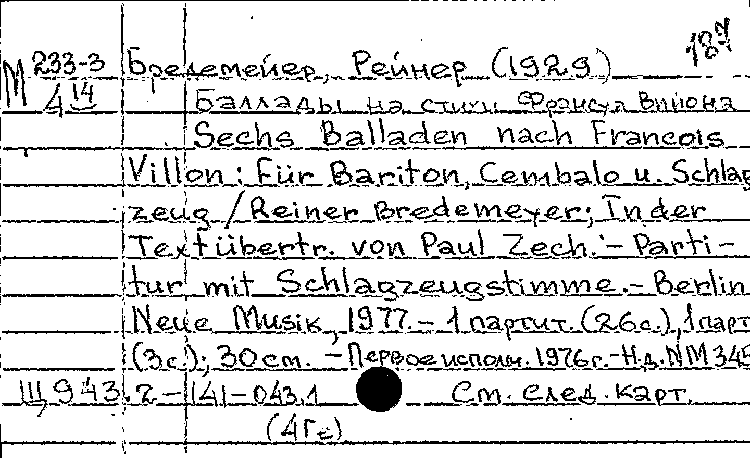 187
М 233-3 Бредемейер, Рейнер (1929)
4 14 Баллады на стихи Франсуа Вийона
Sechs Balladen nach Francois
Villon: Für Bariton, Cembalo u. Schlag
zeug / Reiner Bredemeyer; In der
Textübertr. von Paul Zech. – Parti-
tur mit Schlagzeugstimme. – Berlin
Neue Musik, 1977. – 1 партит. (26 с.), 1 парт
(3 с.); 30 cm. – Первое исполн. 1976 г. – Н.д. NM 345
Щ 943.2-141-043.1 См. след. карт.
(4Ге)